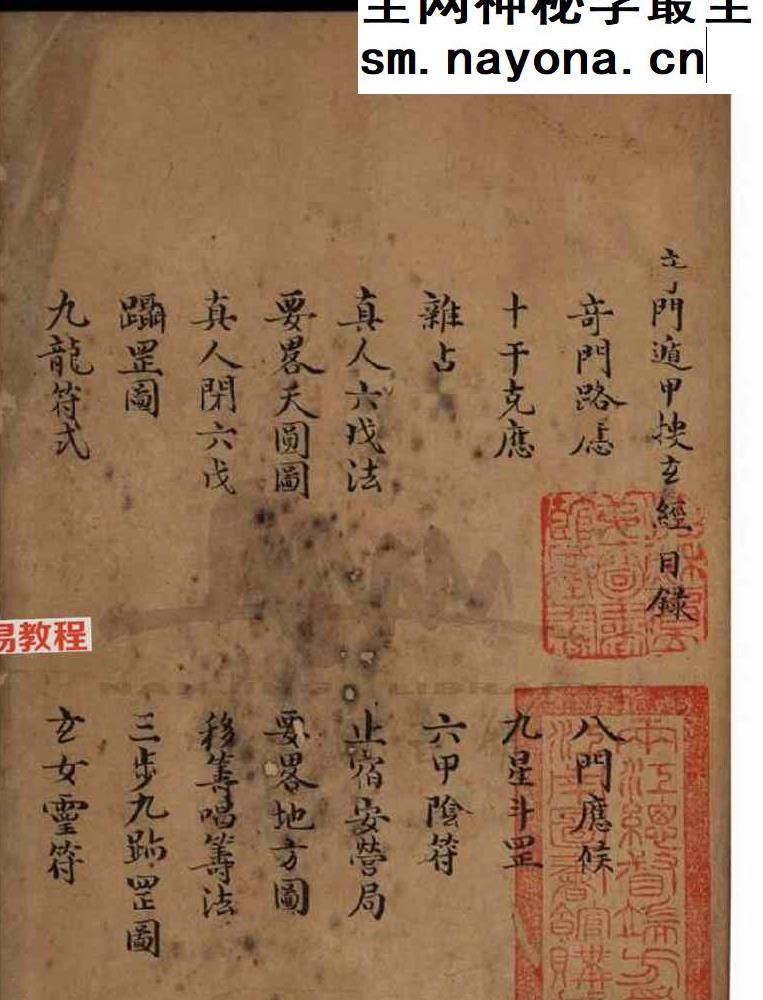 全网神秘学最全
sm.nayona.cn
奇門遁甲搜玄經目錄
竒門路應 八門應候
十干克應 九星斗罡
雜占 六甲陰符
真人六戊法 止宿安營局
要畧天圓圖 要畧地方圖
真人閉六戊 移籌唱籌法
躡罡圖 三步九跡罡圖
九龍符式 玄女靈符
兩江總督端方為
圖書館購
易教程